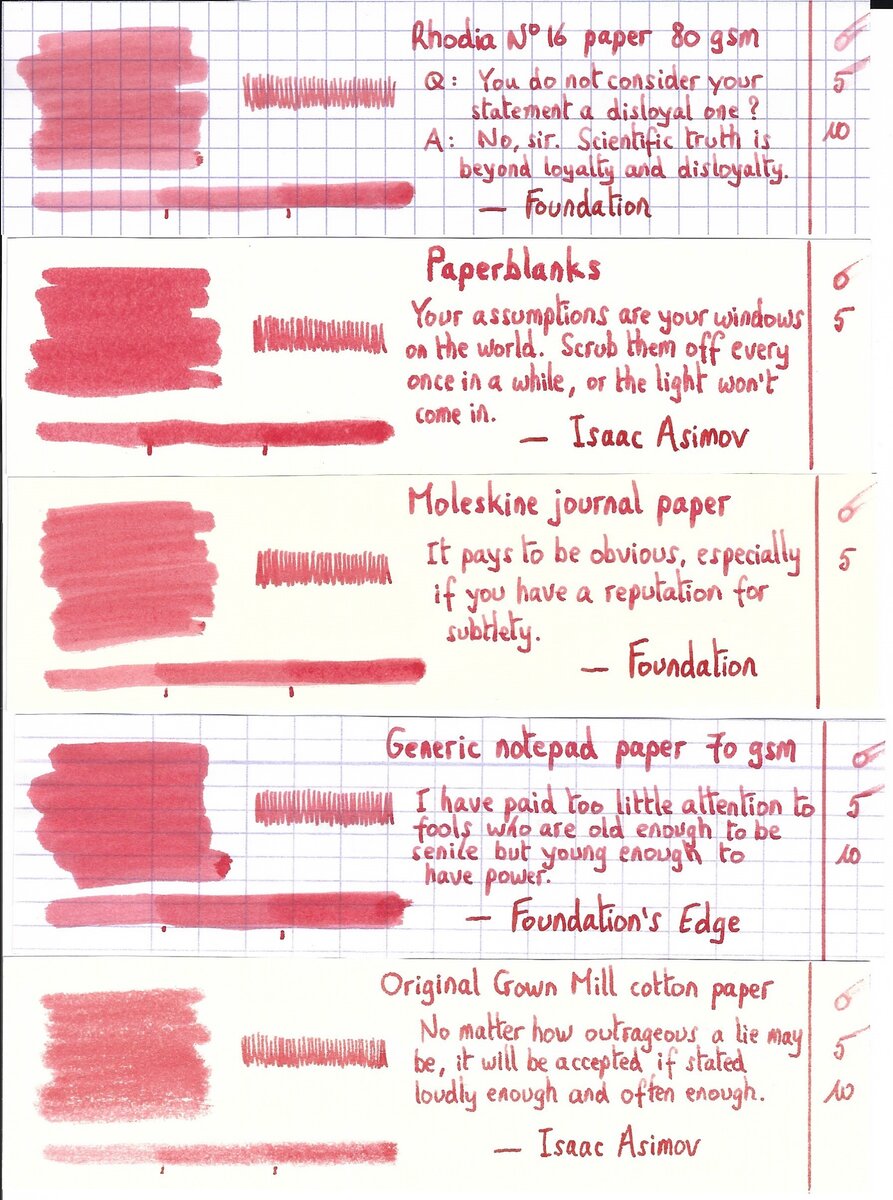 Rhodia N° 16 paper 80 gsm
0
Q: You do not consider your
5
statement a disloyal one?
A: No, sir. Scientific truth is
10
beyond loyalty and disloyalty.
— Foundation
Paperblanks
0
Your assumptions are your windows
5
on the world. Scrub them off every
once in a while, or the light won't
come in.
— Isaac Asimov
Moleskine journal paper
0
It pays to be obvious, especially
5
if you have a reputation for
subtlety.
— Foundation
Generic notepad paper 70 gsm
0
I have paid too little attention to
5
fools who are old enough to be
senile but young enough to
10
have power.
— Foundation's Edge
Original Crown Mill cotton paper
0
No matter how outrageous a lie may
5
be, it will be accepted if stated
loudly enough and often enough.
10
— Isaac Asimov